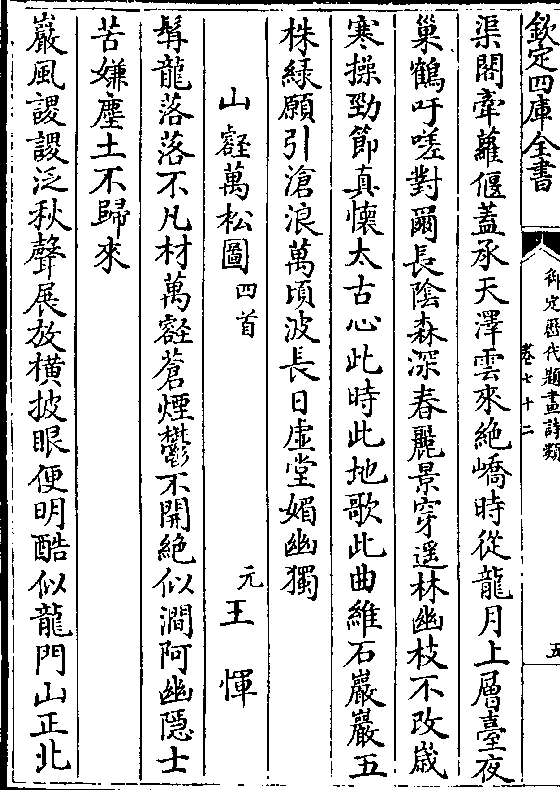 欽定四庫全書
御定歷代題畫詩類
卷七十二
五
渠閣牽蘿偃蓋承天澤雲來絶嶠時從龍月上層臺夜
巢鶴吁嗟對爾長陰森深春麗景穿遥林幽枝不改歳
寒操勁節真懐太古心此時此地歌此曲維石巖巖五
株緑願引滄浪萬頃波長日虛堂媚幽獨
山壑萬松圖四首
元王惲
髯龍落落不凡材萬壑蒼煙鬱不開絶似澗阿幽隠士
苦嫌塵土不歸來
巖風謖謖泛秋聲展放横披眼便明酷似龍門山正北